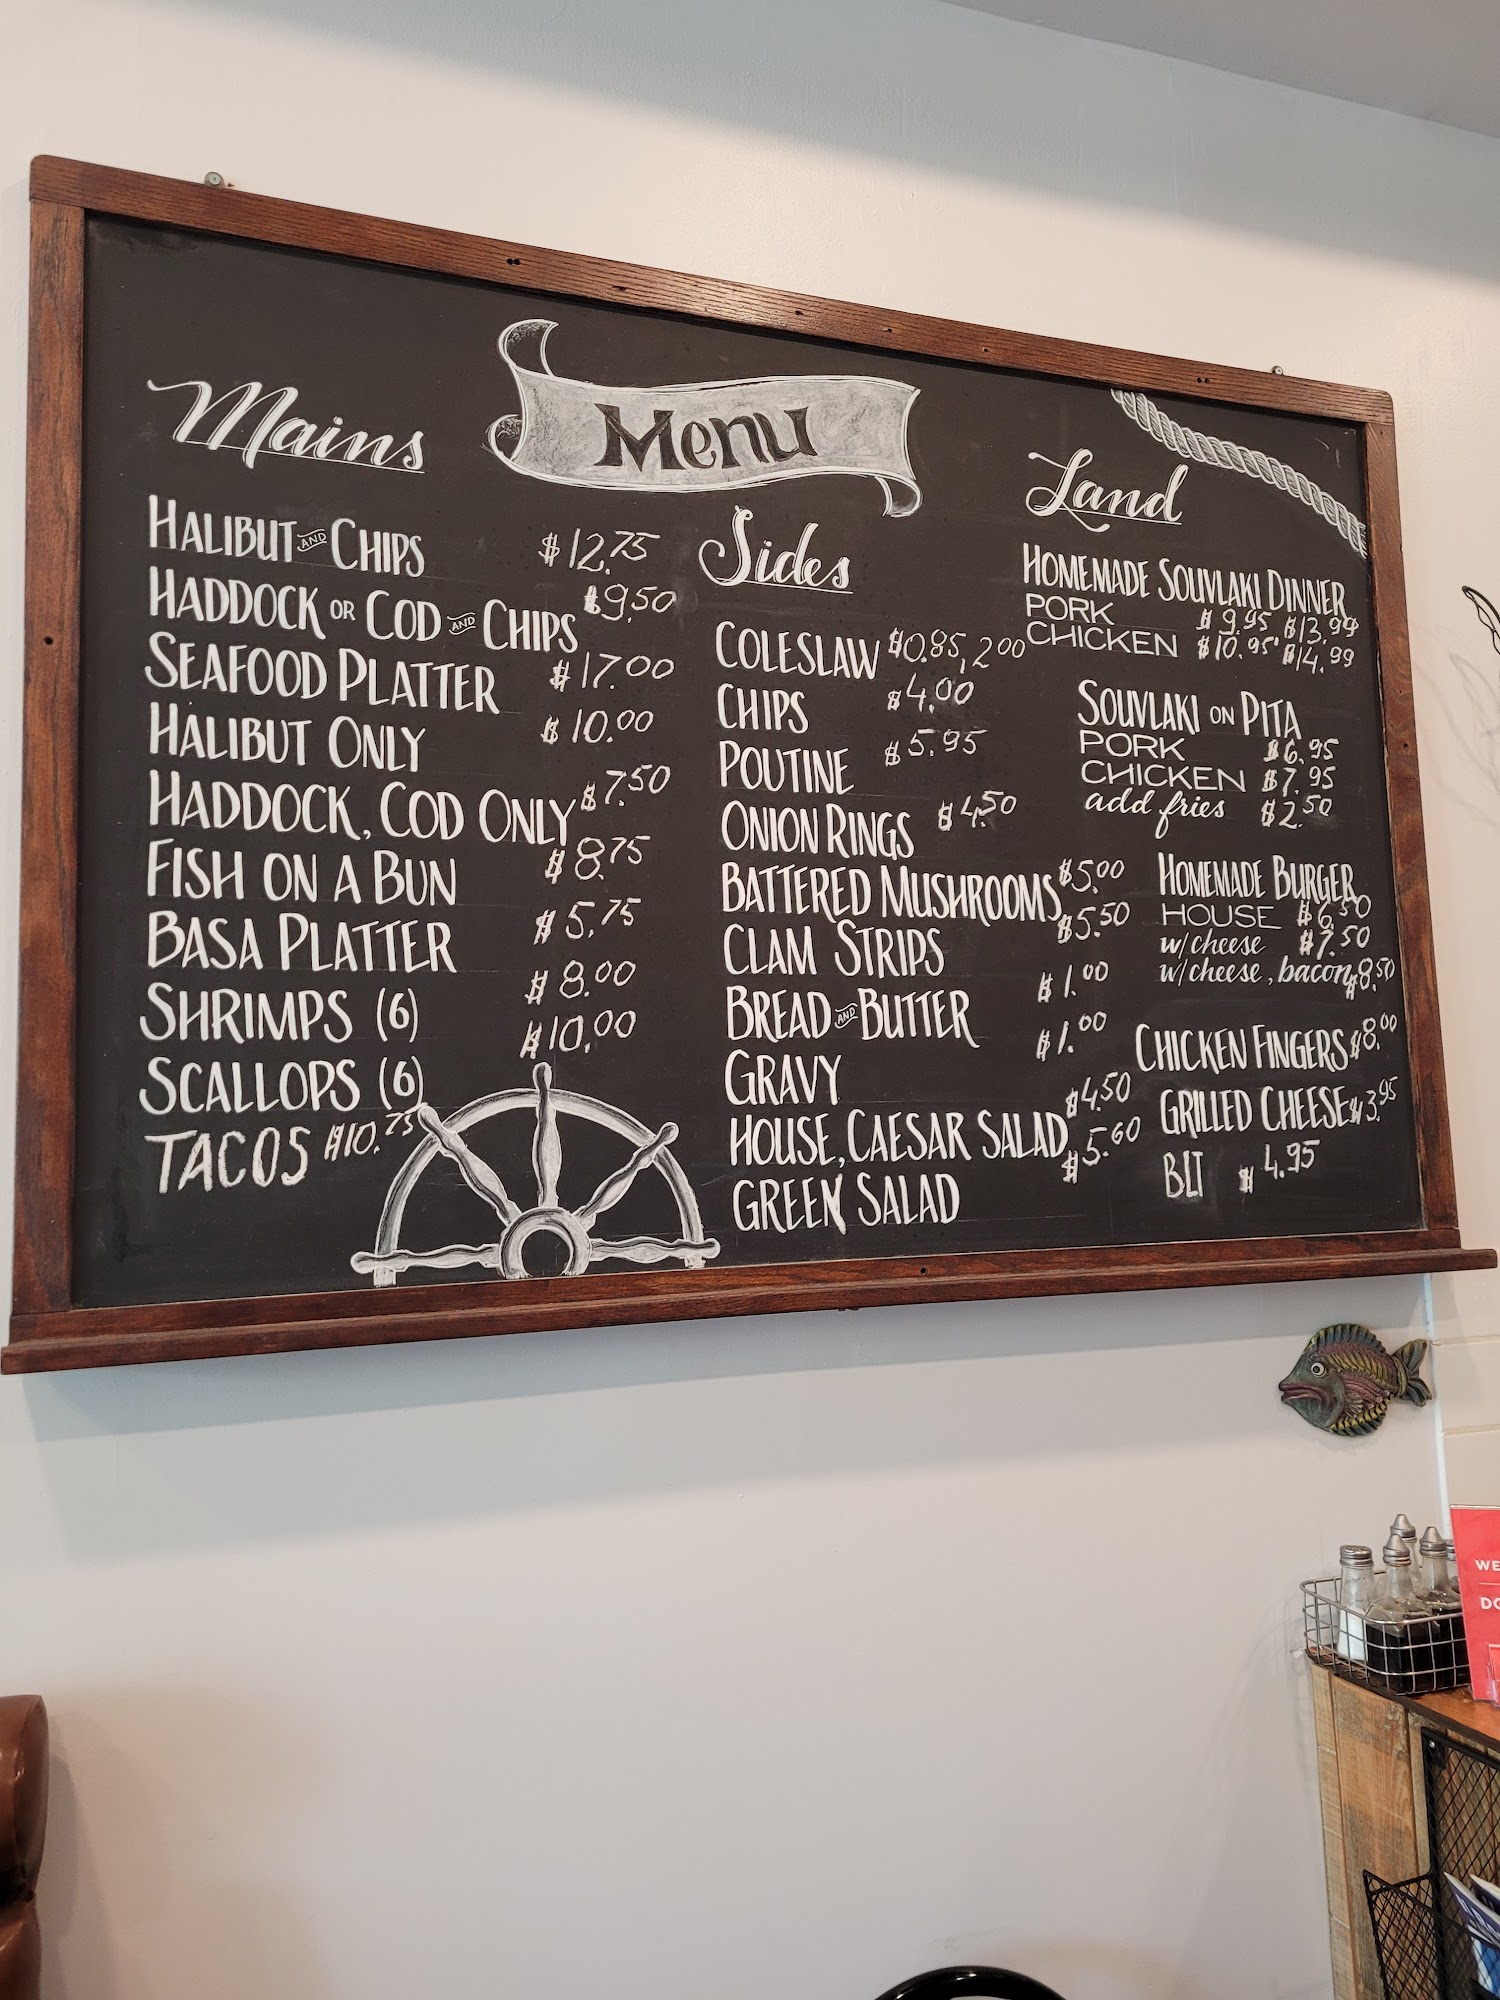 Menu
Mains
HALIBUT AND CHIPS $12.75
HADDOCK OR COD AND CHIPS $9.50
SEAFOOD PLATTER $17.00
HALIBUT ONLY $10.00
HADDOCK, COD ONLY $7.50
FISH ON A BUN $8.75
BASA PLATTER $5.75
SHRIMPS (6) $8.00
SCALLOPS (6) $10.00
TACOS $10.75
Sides
COLESLAW $0.85, 2.00
CHIPS $4.00
POUTINE $5.95
ONION RINGS $4.50
BATTERED MUSHROOMS $5.00
CLAM STRIPS $5.50
BREAD AND BUTTER $1.00
GRAVY $1.00
HOUSE, CAESAR SALAD $4.50
GREEK SALAD $5.60
Land
HOMEMADE SOUVLAKI DINNER
PORK $9.95 $13.99
CHICKEN $10.95 $14.99
SOUVLAKI ON PITA
PORK $6.95
CHICKEN $7.95
add fries $2.50
HOMEMADE BURGER
HOUSE $6.50
w/cheese $7.50
w/cheese, bacon $8.50
CHICKEN FINGERS $8.00
GRILLED CHEESE $3.95
BLT $4.95
WE